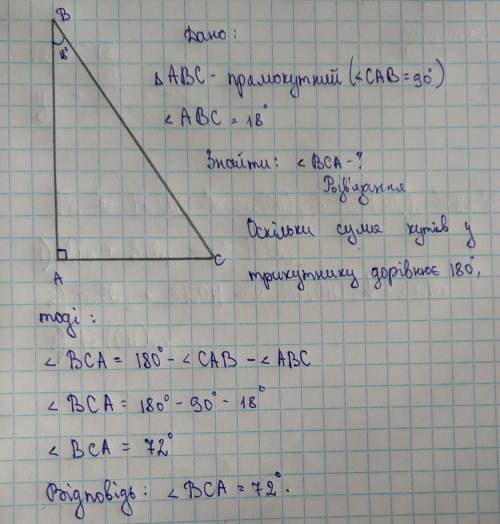 B
18°
A
C
Дано:
△ ABC - прямокутний (∠CAB = 90°)
∠ ABC = 18°
Знайти: ∠ BCA - ?
Розв'язання
Оскільки сума кутів у
трикутнику дорівнює 180°,
тоді:
∠ BCA = 180° - ∠ CAB - ∠ ABC
∠ BCA = 180° - 90° - 18°
∠ BCA = 72°
Відповідь: ∠ BCA = 72°.